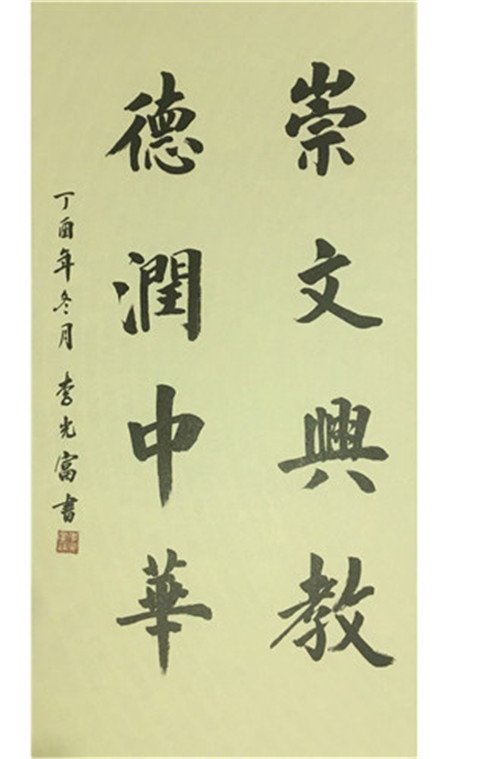 崇文興教
德潤中華
丁酉年冬月 李光富書